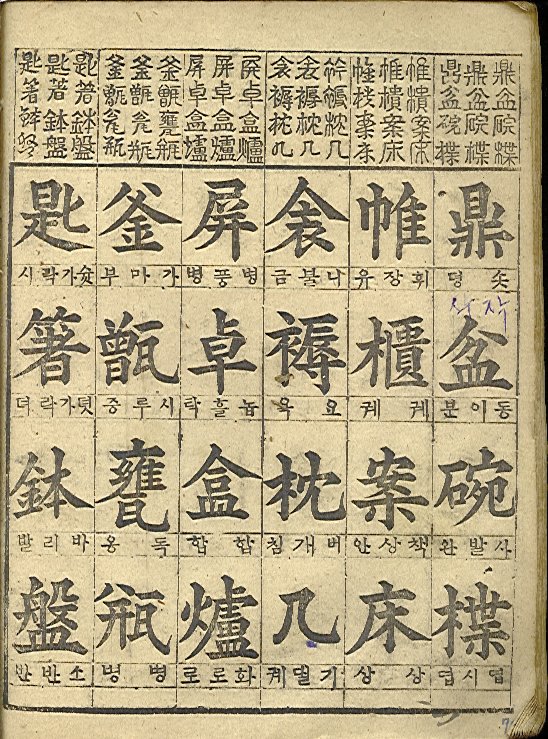 鼎盆碗楪
鼎盆碗楪
鼎盆碗楪
帷櫃案床
帷櫃案床
帷櫃案床
衾褥枕几
衾褥枕几
衾褥枕几
屛卓盒爐
屛卓盒爐
屛卓盒爐
釜甑甕甁
釜甑瓮瓶
釜甑瓮瓶
匙箸鉢盤
匙箸鉢盤
匙箸鉢盤
鼎
솟 뎡
盆
동이분
碗
사발완
楪
帷
휘장유
櫃
궤 궤
案
책상안
床
상 상
衾
니불금
褥
요 욕
枕
벼개침
几
기댈궤
屛
병풍병
卓
놉흘탁
盒
합 합
爐
화로로
釜
가마부
甑
시루증
甕
독 옹
瓶
병 병
匙
숫가락시
箸
뎟가락뎌
鉢
바리발
盤
소반반